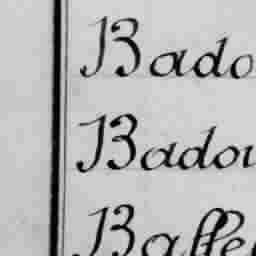 Bado
Badou
Baffe